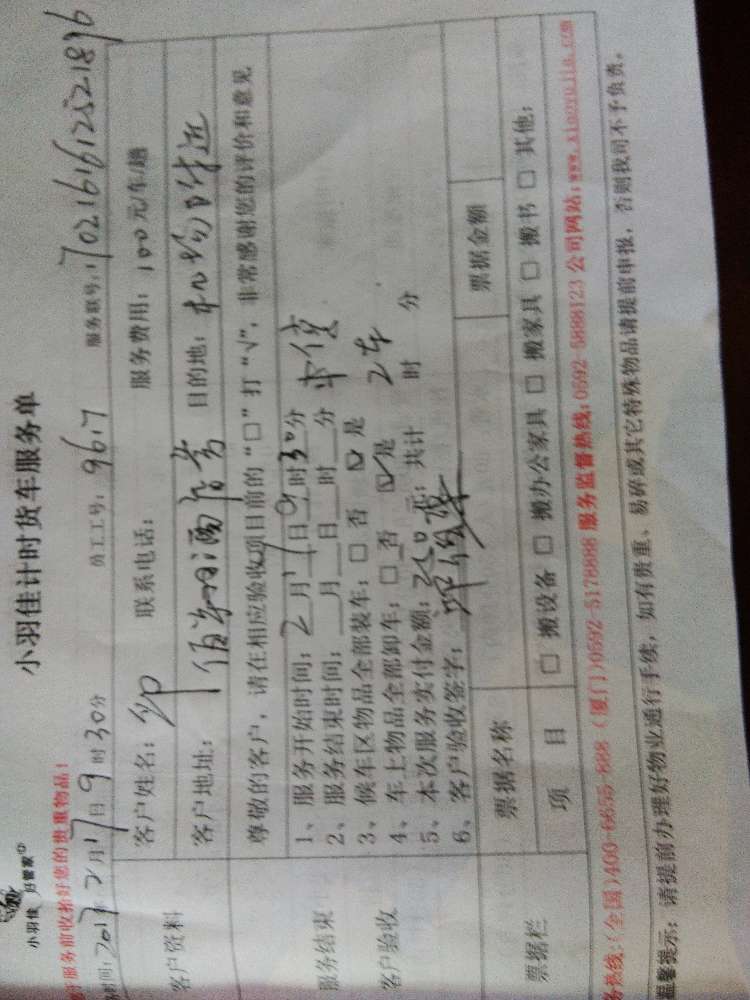 小羽佳 好管家
小羽佳计时货车服务单
服务前收拾好您的贵重物品!
时间: 2017年2月17日9时30分 员工工号: 9617 服务联号: 1702161612521896
客户资料
客户姓名: 联系电话: 服务费用: 100元/车/趟
客户地址: 目的地: 机场附近
尊敬的客户, 请在相应验收项目前的“□”打“√”, 非常感谢您的评价和意见
服务结束
客户验收
1、服务开始时间: 2月17日9时30分
2、服务结束时间: __月__日__时__分
3、候车区物品全部装车: □否 ☑是
4、车上物品全部卸车: □否 ☑是 2车
5、本次服务实付金额: 元; 共计 时 分
6、客户验收签字:
票据栏
票据名称 票据金额
项目 □搬设备 □搬办公家具 □搬家具 □搬书 □其他:
务热线:(全国)400-6655-888 (厦门)0592-5178888 服务监督热线:0592-5888123 公司网站:www.xiaoyujia.com
温馨提示: 请提前办理好物业通行手续, 如有贵重、易碎或其它特殊物品请提前申报, 否则我司不予负责。